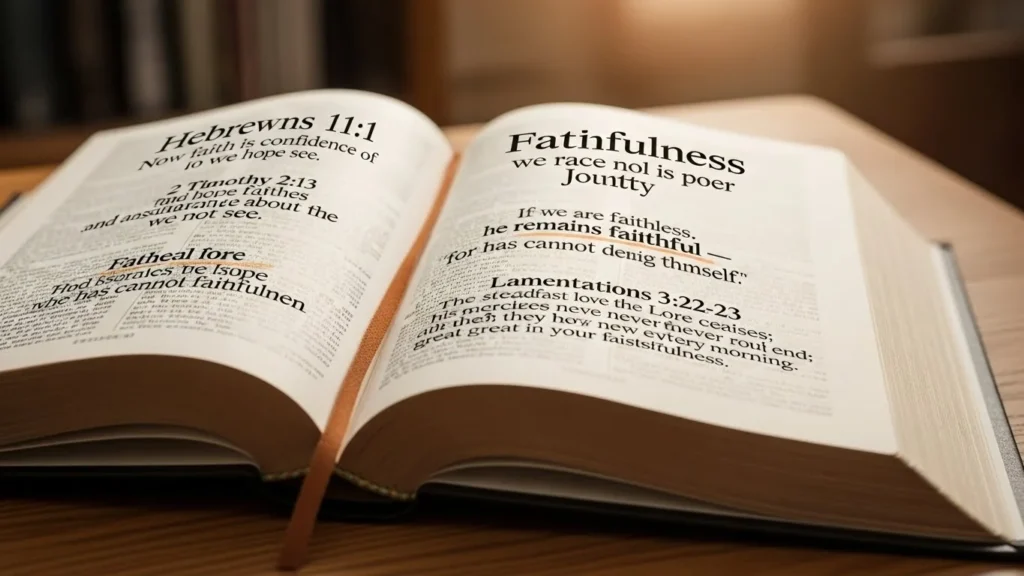 Hebrewns 11:1
Now faith is confidence of
io we hope see.
2 Timothy 2:13
and hope faithes
and assumarance about the
we not see.
Fatheal fore
Hod be
whe has cannot faithfulnen
Fatihfulness
we race nol is poer
Jountty
If we are faithless,
he remains failthful —
"for has cannot denig thmself."
Lamentations 3:22-23
The steadfast love the Lore ceaises;
his merckees neve never fnever roul end;
ant theis they how new evytery morning.
great great in your faistsfulness.